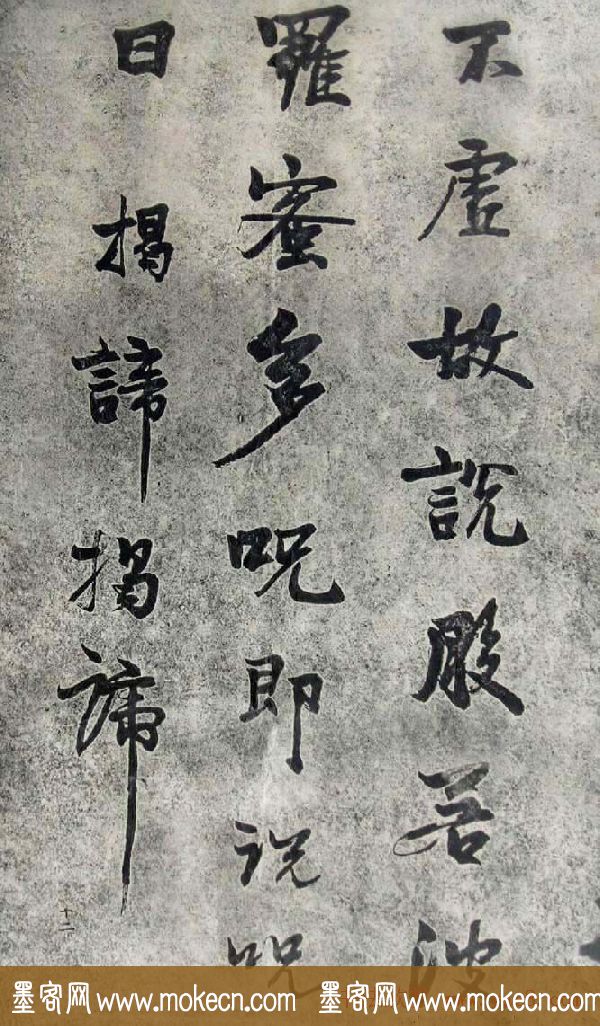 不虚故説般若波
羅蜜多呪即説呪
曰揭諦揭諦
十二
墨客网 www.mokecn.com 墨客网 www.mokecn.com